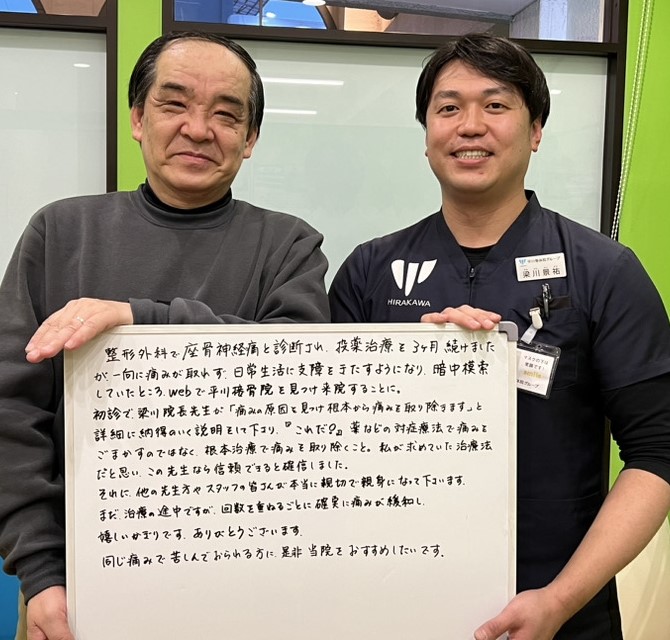 HIRAKAWA
平川接骨院グループ
梁川景祐
整形外科で座骨神経痛と診断され、投薬治療を3ヶ月続けました
が、一向に痛みが取れず、日常生活に支障をきたすようになり、暗中模索
していたところ、webで平川接骨院を見つけ来院することに。
初診で梁川院長先生が「痛みの原因を見つけ根本から痛みを取り除きます」と
詳細に納得のいく説明をして下り、『これだ?』薬などの対症療法で痛みを
ごまかすのではなく、根本治療で痛みを取り除くこと。私が求めていた治療法
だと思い、この先生なら信頼できると確信しました。
それに、他の先生方やスタッフの皆さんが本当に親切で親身になって下います。
まだ、治療の途中ですが、回数を重ねるごとに確実に痛みが緩和し、
嬉しいかぎりです。ありがとうございます。
同じ痛みで苦しんでおられる方に、是非当院をおすすめしたいです。